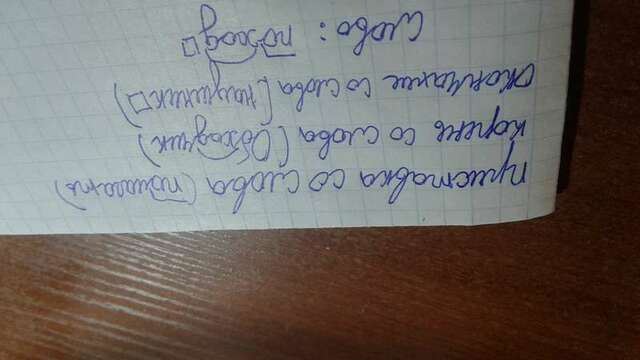 приставка со слова (полагать)
корень со слова (Обходчик)
окончание со слова (наушник□)
слово: поход□